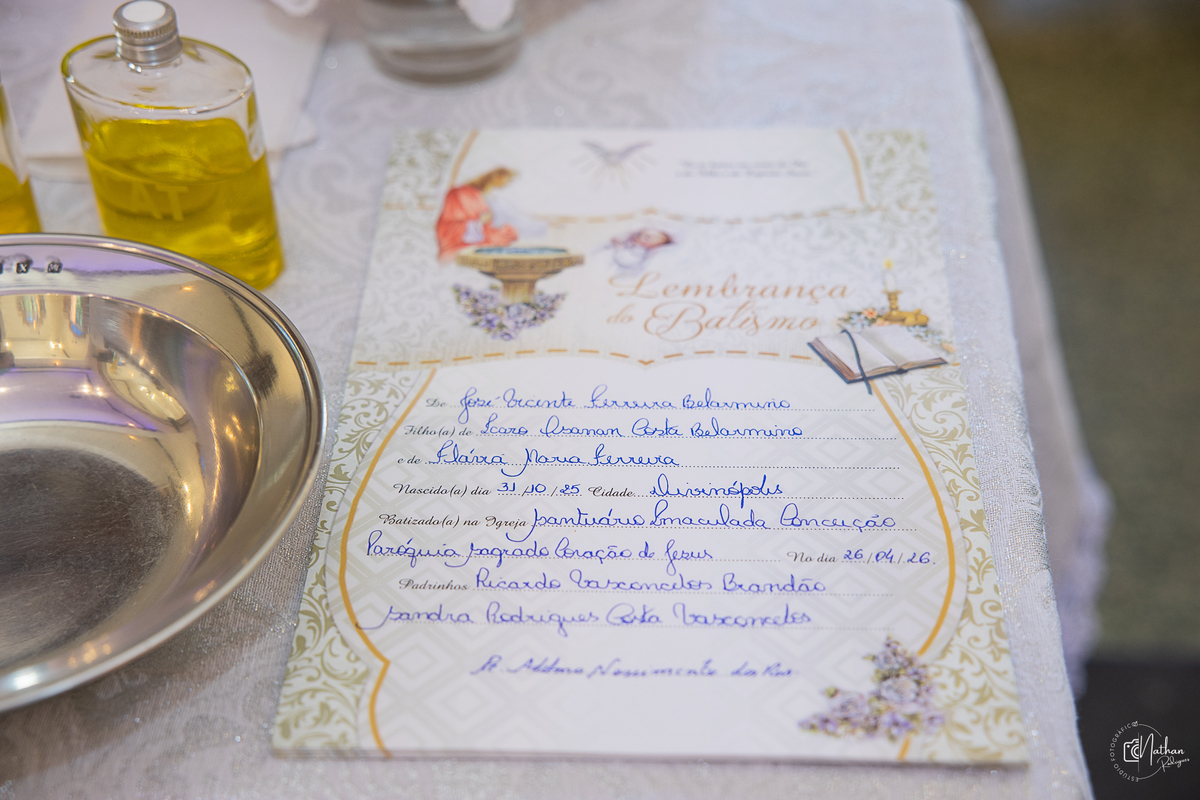 AT
Lembrança
do Batismo
De José Vicente Ferreira Belarmino
Filho(a) de Ícaro Osanan Costa Belarmino
e de Flávia Maria Ferreira
Nascido(a) dia 31/10/25 Cidade Divinópolis
Batizado(a) na Igreja Santuário Imaculada Conceição
Paróquia Sagrado Coração de Jesus No dia 26/04/26.
Padrinhos Ricardo Vasconcelos Brandão
Sandra Rodrigues Costa Vasconcelos
Nascimento
ESTÚDIO FOTOGRÁFICO
Nathan
Rodrigues